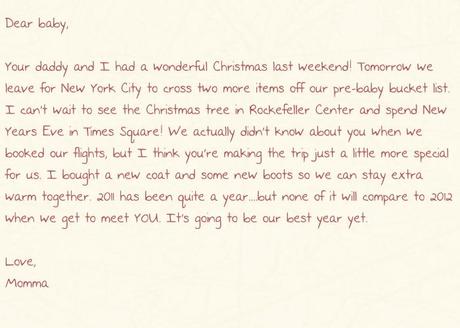 Dear baby,
Your daddy and I had a wonderful Christmas last weekend! Tomorrow we
leave for New York City to cross two more items off our pre-baby bucket list.
I can't wait to see the Christmas tree in Rockefeller Center and spend New
Years Eve in Times Square! We actually didn't know about you when we
booked our flights, but I think you're making the trip just a little more special
for us. I bought a new coat and some new boots so we can stay extra
warm together. 2011 has been quite a year....but none of it will compare to 2012
when we get to meet YOU. It's going to be our best year yet.
Love,
Momma